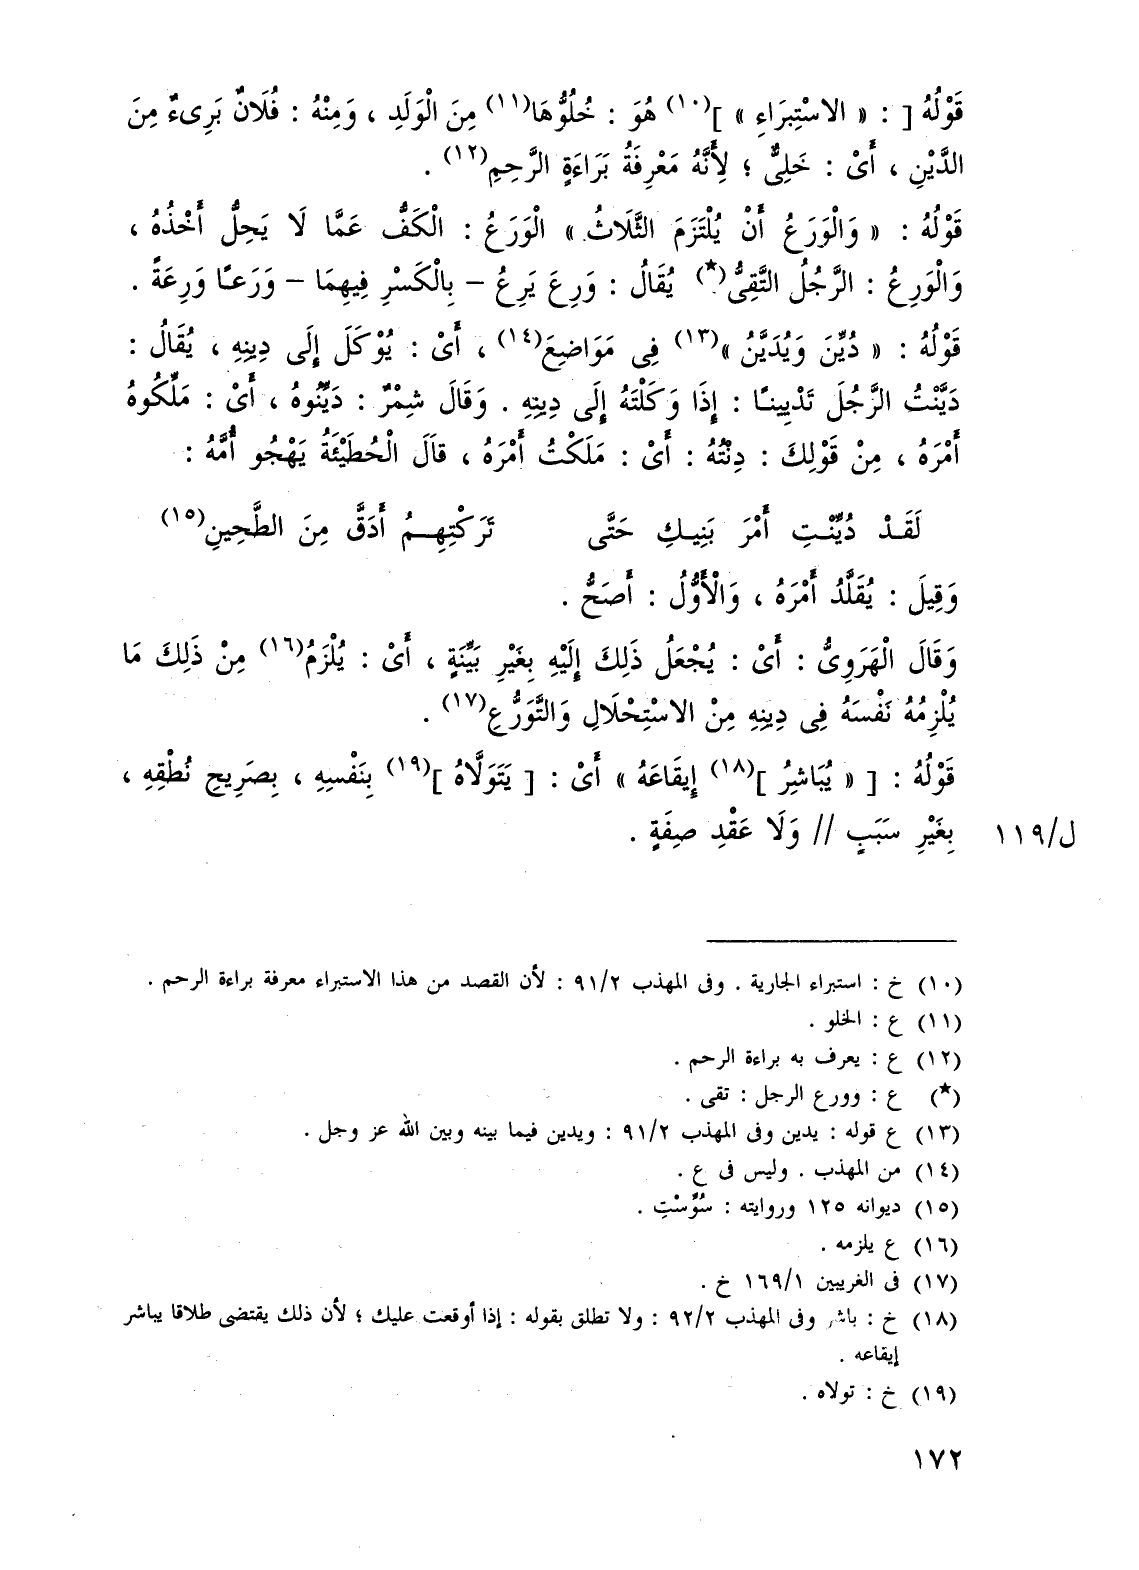 قَوْلُهُ [ : « الاسْتِبْرَاءِ » ](١٠) هُوَ : خُلُوُّهَا(١١) مِنَ الْوَلَدِ ، وَمِنْهُ : فُلَانٌ بَرِىءٌ مِنَ
الدَّيْنِ ، أَىْ : خَلِىٌّ ؛ لِأَنَّهُ مَعْرِفَةُ بَرَاءَةٍ الرَّحِمِ(١٢) .
قَوْلُهُ : « وَالْوَرَعُ أَنْ يُلْتَزَمَ الثَّلَاثُ » الْوَرَعُ : الْكَفُّ عَمَّا لَا يَحِلُّ أَخْذُهُ ،
وَالْوَرِعُ : الرَّجُلُ التَّقِىُّ(★) يُقَالُ : وَرِعَ يَرِعُ – بِالْكَسْرِ فِيهِمَا – وَرَعًا وَرِعَةً .
قَوْلُهُ : « دُيِّنَ وَيُدَيَّنُ »(١٣) فِى مَوَاضِعَ(١٤) ، أَىْ : يُوْكَلَ إِلَى دِينِهِ ، يُقَالُ :
دَيَّنْتُ الرَّجُلَ تَدْيِينًا : إِذَا وَكَلْتَهُ إِلَى دِينِهِ . وَقَالَ شِمْرٌ : دَيِّنُوهُ ، أَىْ : مَلِّكُوهُ
أَمْرَهُ ، مِنْ قَوْلِكَ : دِنْتُهُ : أَىْ : مَلَكْتُ أَمْرَهُ ، قَالَ الْحُطَيْئَةُ يَهْجُو أُمَّهُ :
لَقَدْ دُيِّنْتِ أَمْرَ بَنِيكِ حَتَّى تَرَكْتِهِمُ أَدَقَّ مِنَ الطَّحِينِ(١٥)
وَقِيلَ : يُقَلَّدُ أَمْرَهُ ، وَالْأَوَّلُ : أَصَحُّ .
وَقَالَ الْهَرَوِىُّ : أَىْ : يُجْعَلُ ذَلِكَ إِلَيْهِ بِغَيْرِ بَيِّنَةٍ ، أَىْ : يُلْزَمُ(١٦) مِنْ ذَلِكَ مَا
يُلْزِمُهُ نَفْسَهُ فِى دِينِهِ مِنْ الاسْتِحْلَالِ وَالتَّوَرُّعِ(١٧) .
قَوْلُهُ : [ « يُبَاشِرُ ](١٨) إِيقَاعَهُ » أَىْ : [ يَتَوَلَّاهُ ](١٩) بِنَفْسِهِ ، بِصَرِيحِ نُطْقِهِ ،
ل/١١٩ بِغَيْرِ سَبَبٍ // وَلَا عَقْدِ صِفَةٍ .
(١٠) خ : استبراء الجارية . وفى المهذب ٩١/٢ : لأن القصد من هذا الاستبراء معرفة براءة الرحم .
(١١) ع : الخلو .
(١٢) ع : يعرف به براءة الرحم .
(★) ع : وورع الرجل : تقى .
(١٣) ع قوله : يدين وفى المهذب ٩١/٢ : ويدين فيما بينه وبين الله عز وجل .
(١٤) من المهذب . وليس فى ع .
(١٥) ديوانه ١٢٥ وروايته : سُوِّسْتِ .
(١٦) ع يلزمه .
(١٧) فى الغريبين ١٦٩/١ خ .
(١٨) خ : باشر وفى المهذب ٩٢/٢ : ولا تطلق بقوله : إذا أوقعت عليك ؛ لأن ذلك يقتضى طلاقا يباشر
إيقاعه .
(١٩) خ : تولاه .
١٧٢